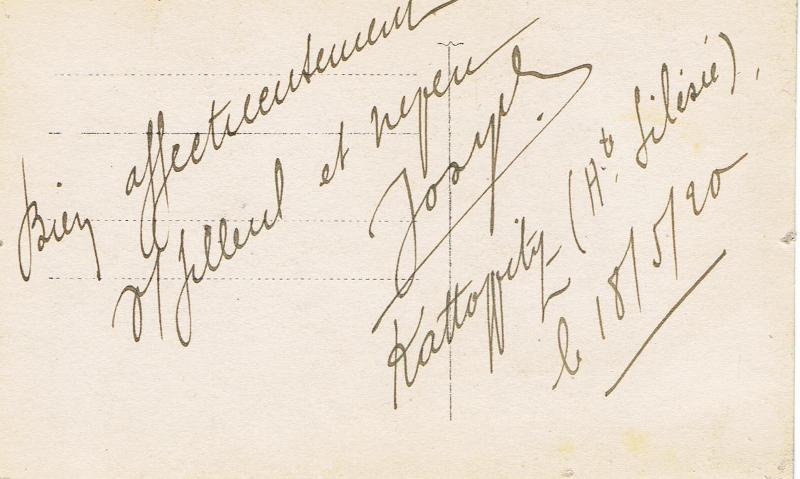 Bien affectueusement
v/ filleul et neveu
Joseph.
Kattowitz (Hte Silésie),
le 18/5/20